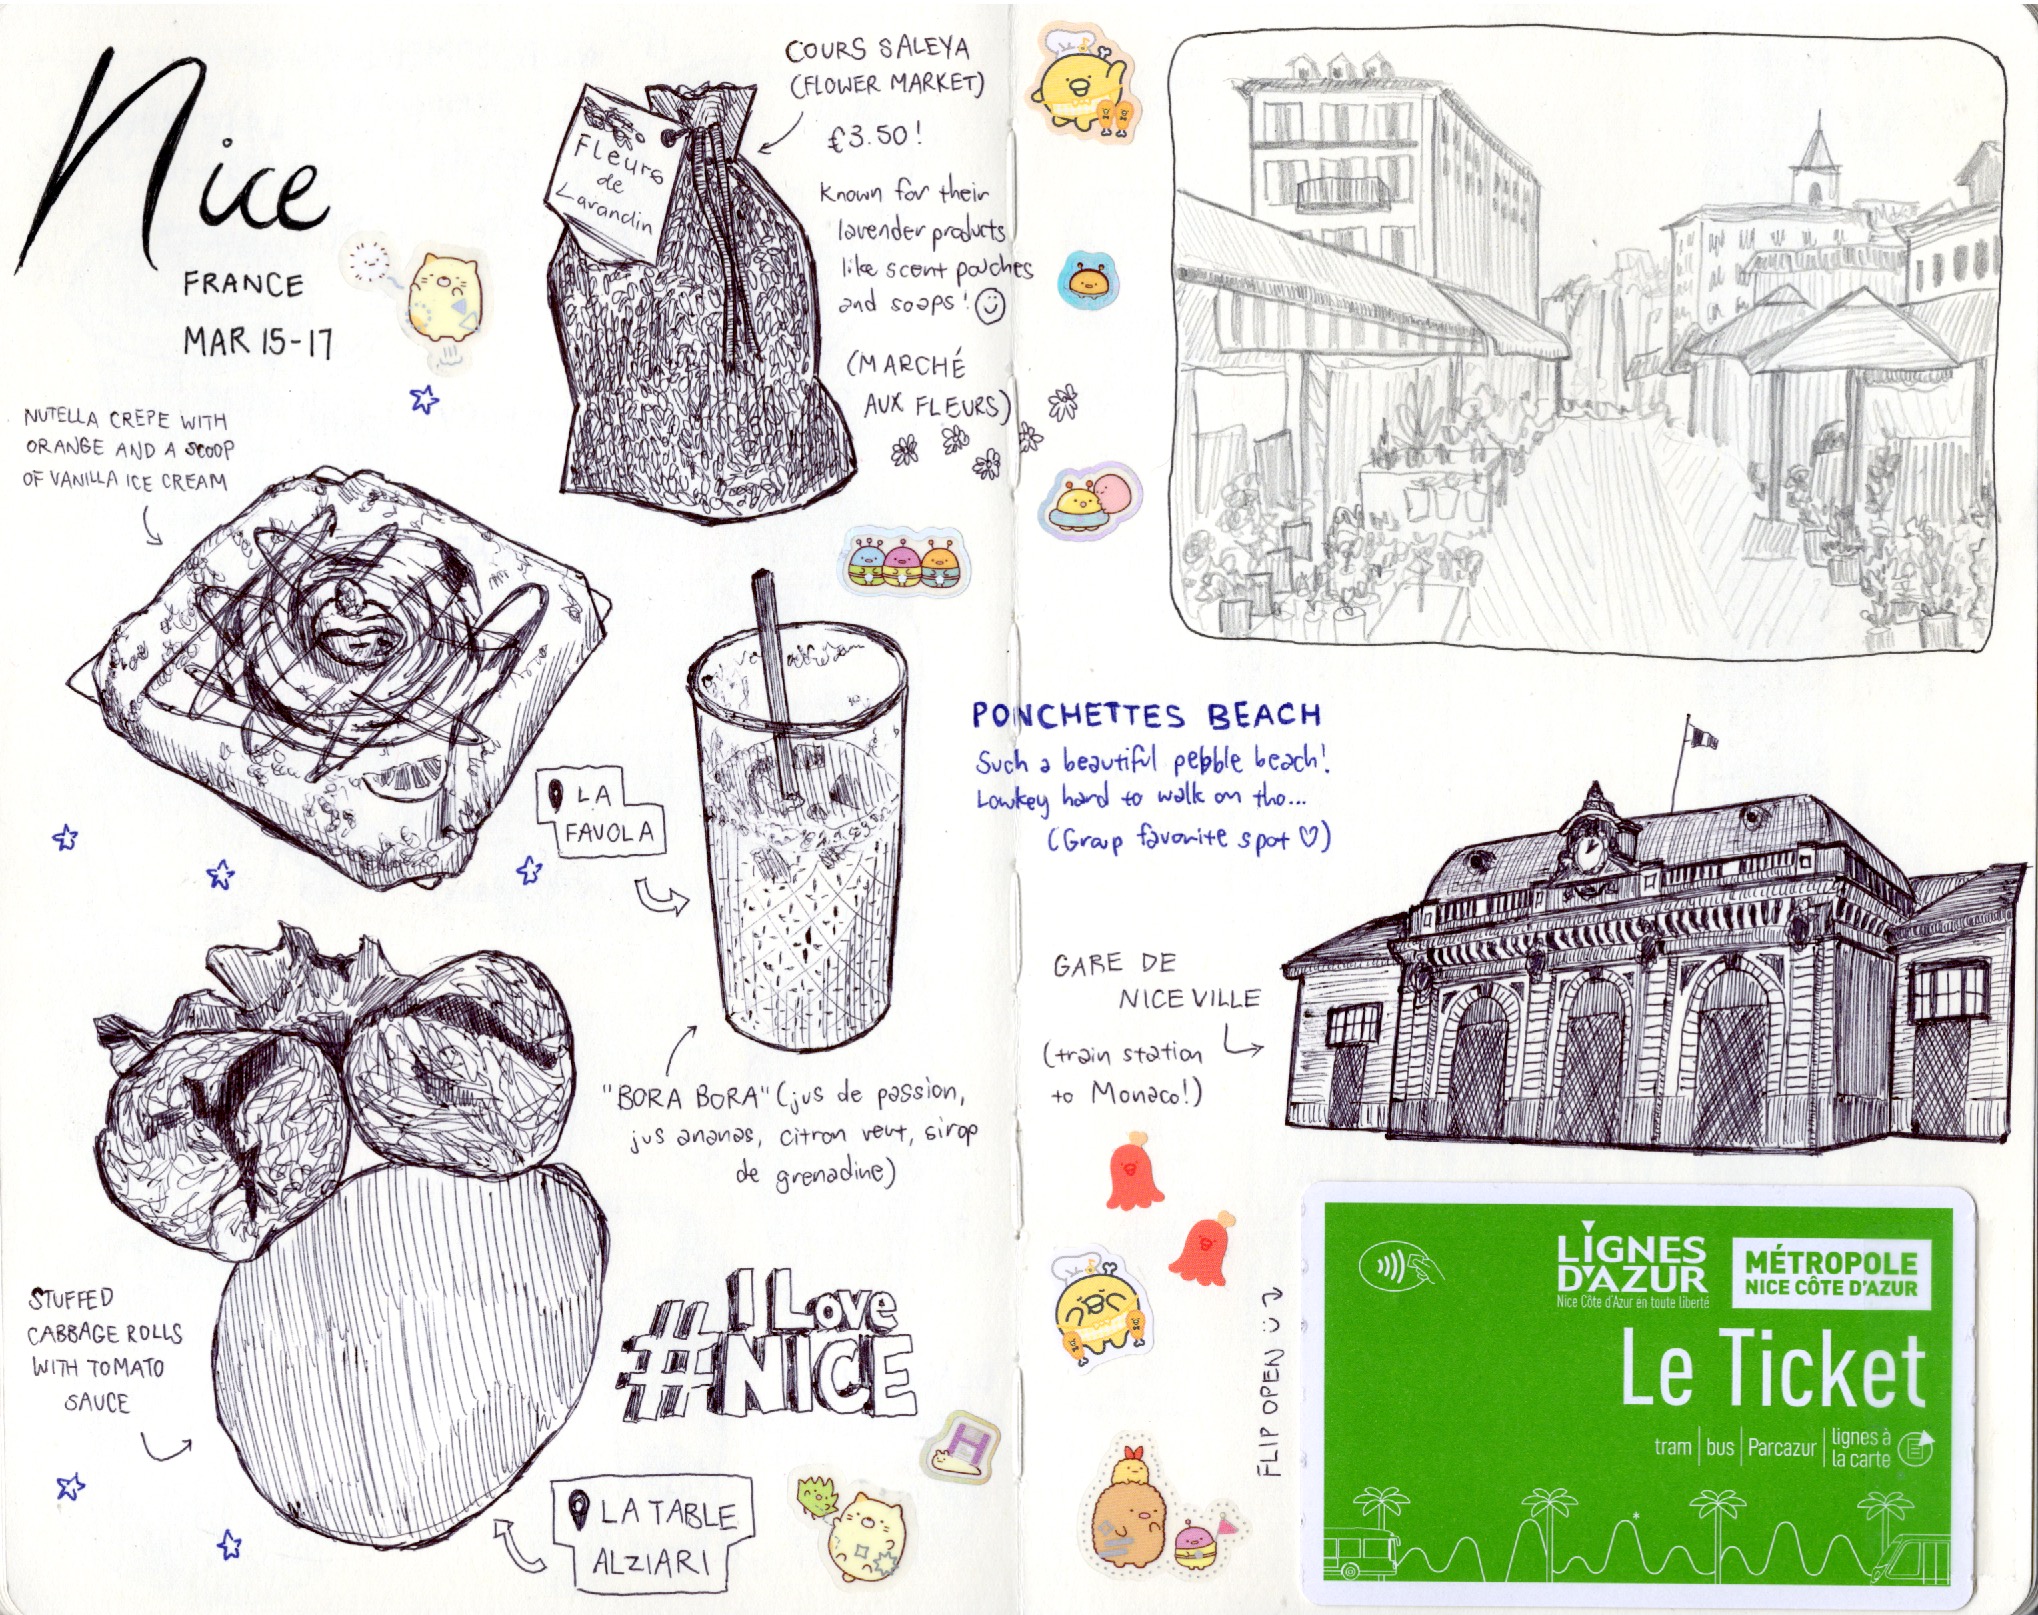 Nice
FRANCE
MAR 15-17
NUTELLA CREPE WITH
ORANGE AND A SCOOP
OF VANILLA ICE CREAM
Fleurs
de
Lavandin
COURS SALEYA
(FLOWER MARKET)
€3.50!
Known for their
lavender products
like scent pouches
and soaps!
(MARCHÉ
AUX FLEURS)
LA
FAVOLA
"BORA BORA" (jus de passion,
jus ananas, citron vert, sirop
de grenadine)
STUFFED
CABBAGE ROLLS
WITH TOMATO
SAUCE
#I Love
NICE
LA TABLE
ALZIARI
PONCHETTES BEACH
Such a beautiful pebble beach!
Lowkey hard to walk on tho...
(Group favorite spot ♡)
GARE DE
NICE VILLE
(train station
to Monaco!)
FLIP OPEN
LIGNES
D'AZUR
Nice Côte d'Azur en toute liberté
MÉTROPOLE
NICE CÔTE D'AZUR
Le Ticket
tram | bus | Parcazur | lignes à
la carte
H